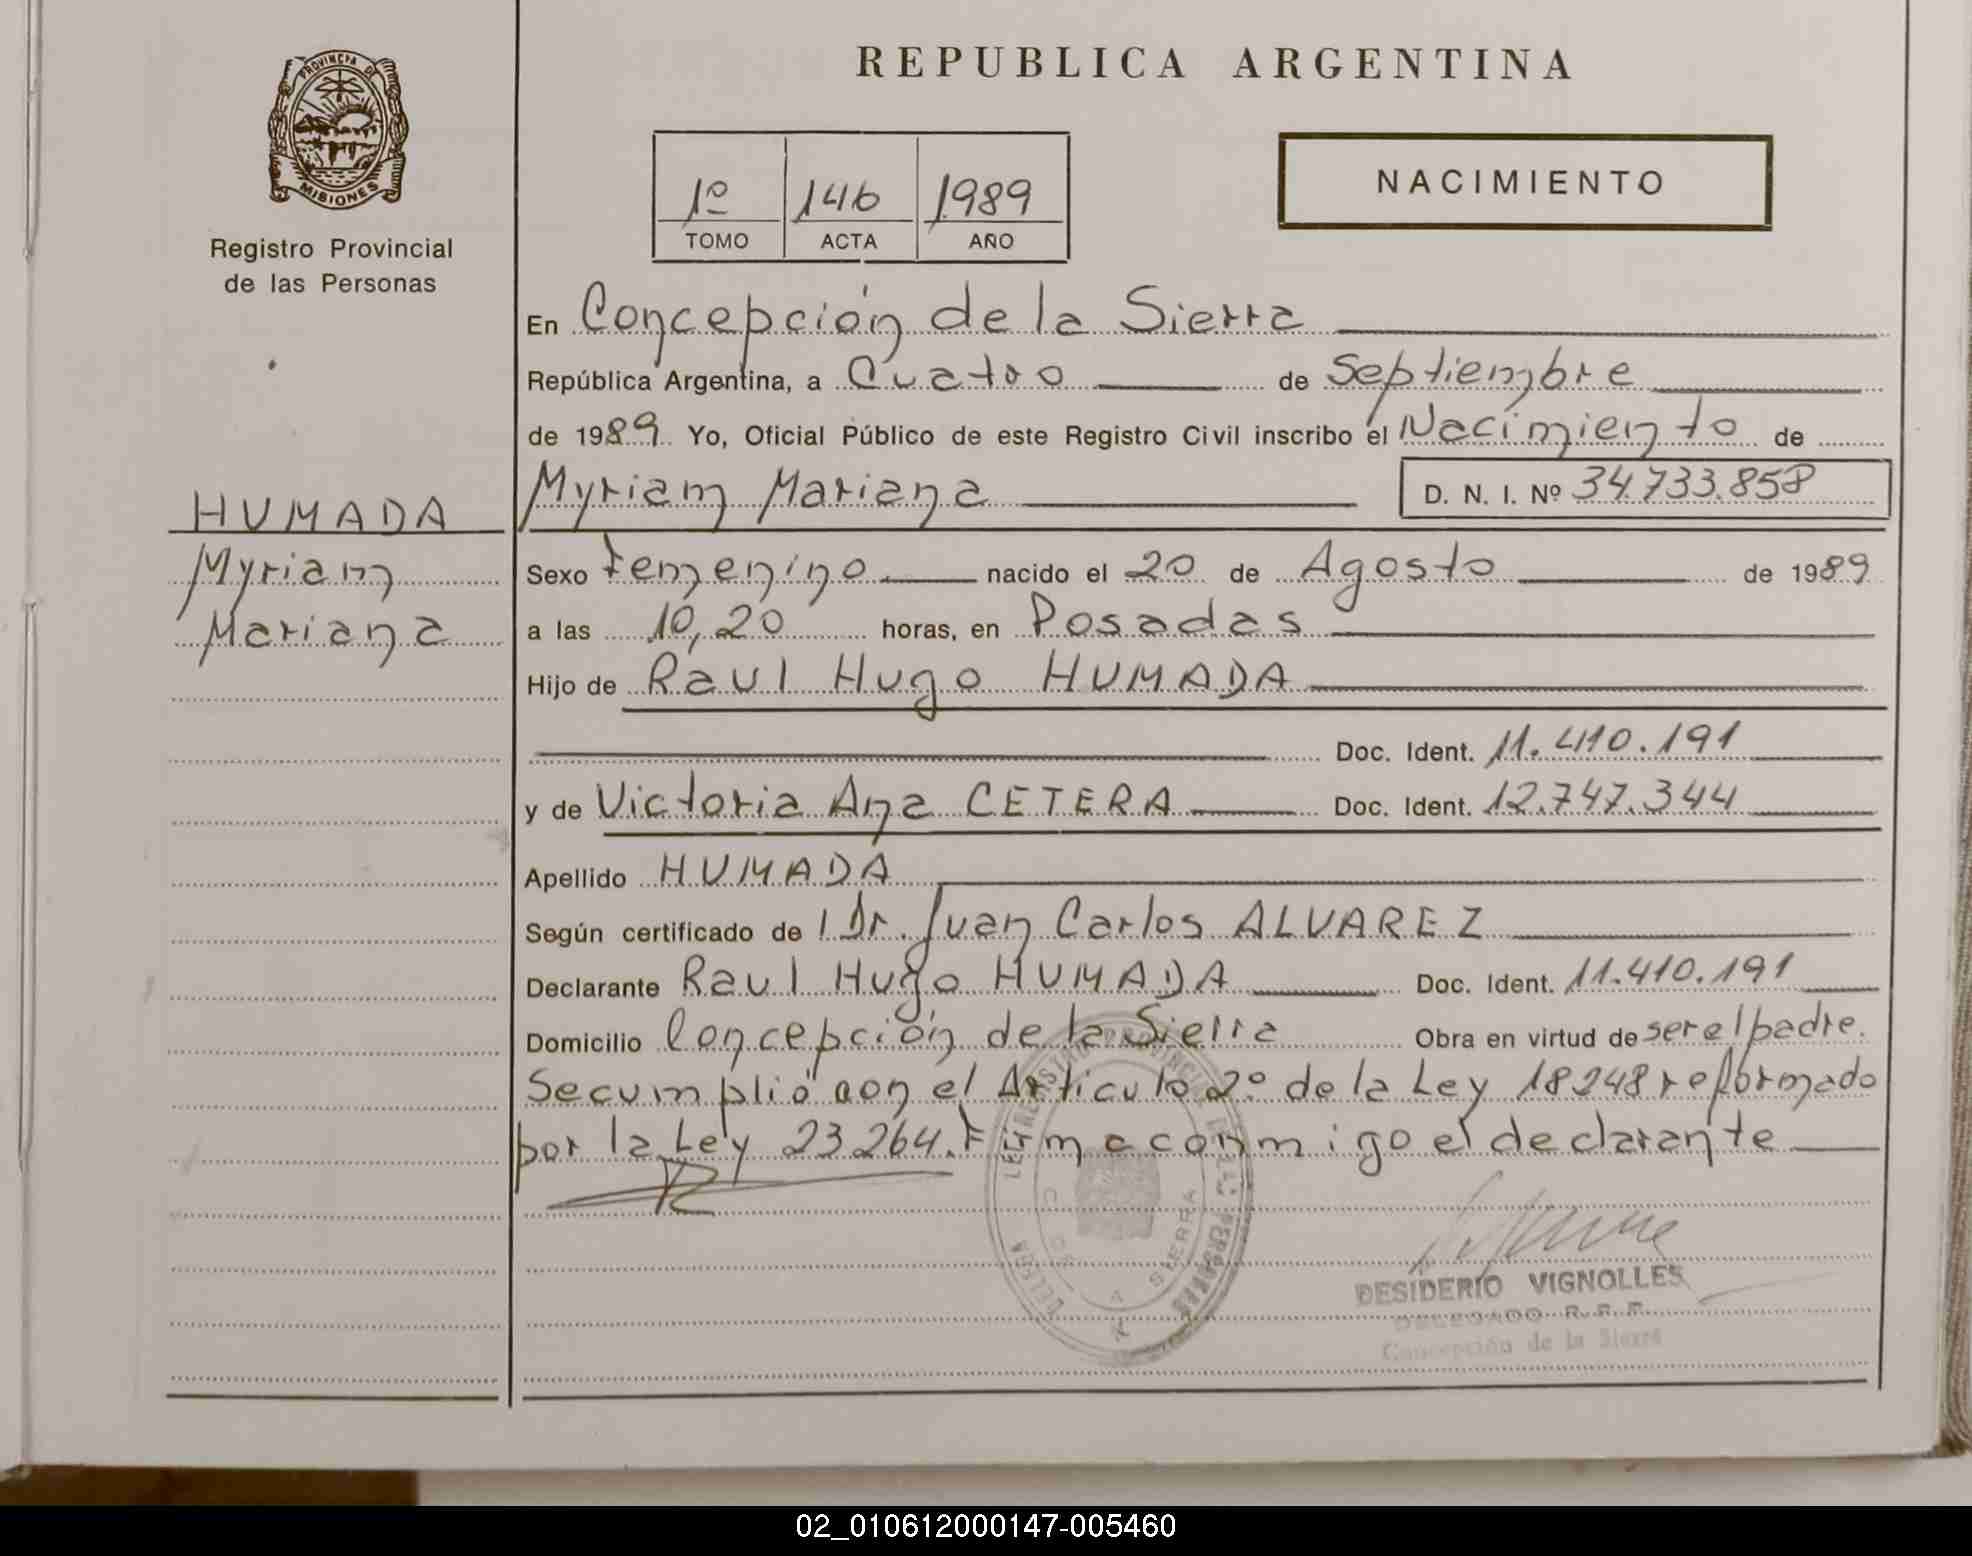 PROVINCIA DE
MISIONES
Registro Provincial
de las Personas
HUMADA
Myriam
Mariana
REPUBLICA ARGENTINA
1º 146 1989
TOMO ACTA AÑO
NACIMIENTO
En Concepción de la Sierra
República Argentina, a Cuatro de Septiembre
de 1989 Yo, Oficial Público de este Registro Civil inscribo el Nacimiento de
Myriam Mariana D. N. I. Nº 34.733.858
Sexo Femenino nacido el 20 de Agosto de 1989
a las 10,20 horas, en Posadas
Hijo de Raul Hugo HUMADA
Doc. Ident. 11.410.191
y de Victoria Ana CETERA Doc. Ident. 12.747.344
Apellido HUMADA
Según certificado de l Dr. Juan Carlos ALVAREZ
Declarante Raul Hugo HUMADA Doc. Ident. 11.410.191
Domicilio Concepción de la Sierra Obra en virtud de ser el padre.
Se cumplió con el Artículo 2º de la Ley 18248 reformado
por la Ley 23264. Firma conmigo el declarante
DESIDERIO VIGNOLLES
DELEGADO R.P.P.
Concepción de la Sierra
02_010612000147-005460